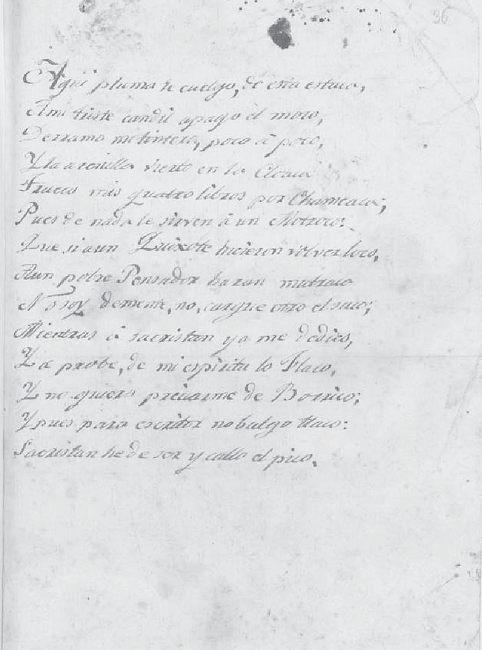 96
Aqui pluma te cuelgo, de esta estaca,
A mi triste candil apago el moco,
Derramo mi tintero, poco â poco,
Y la arenilla vierto en la Cloaca
mis quatro libros por
Pues de nada le sirven â un
Que si a un Quixote hicieron volver loco,
A un pobre Pensador haran matraca
No soy demente, no, cargue otro el saco;
Mientras â sacristan ya me dedico,
Ya probe, de mi espiritu lo Flaco,
Y no quiero preciarme de Borrico;
Y pues para escritor no balgo tlaco:
Sacristan he de ser y callo el pico.